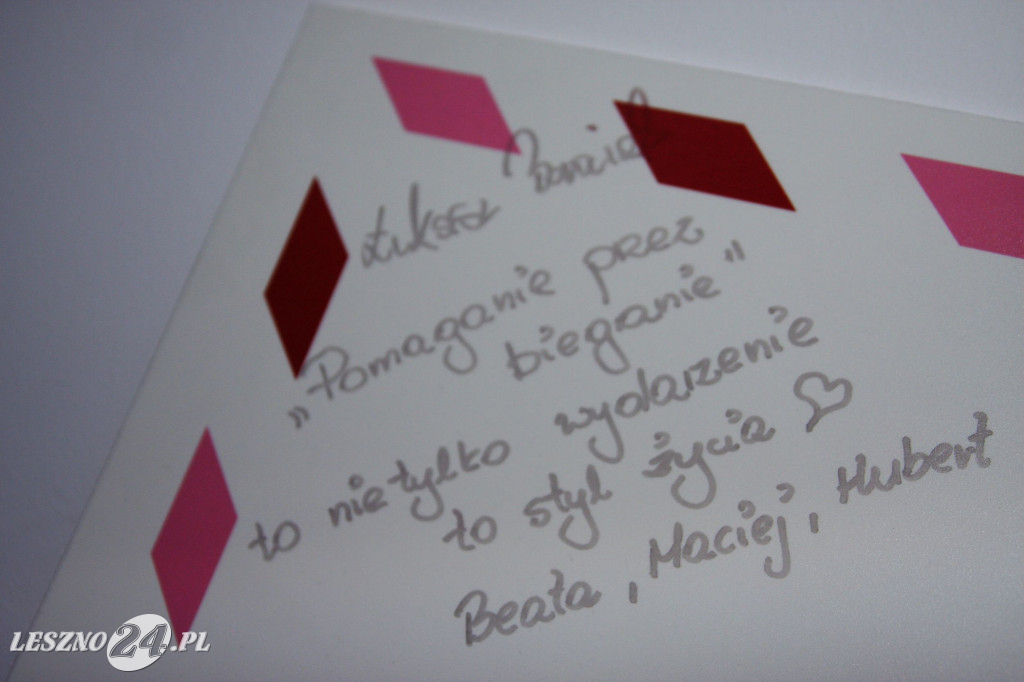 Łukasz Daniel
"Pomaganie prez
bieganie"
to nie tylko wydarzenie
to styl życia
Beata, Maciej, Hubert
LESZNO24.PL